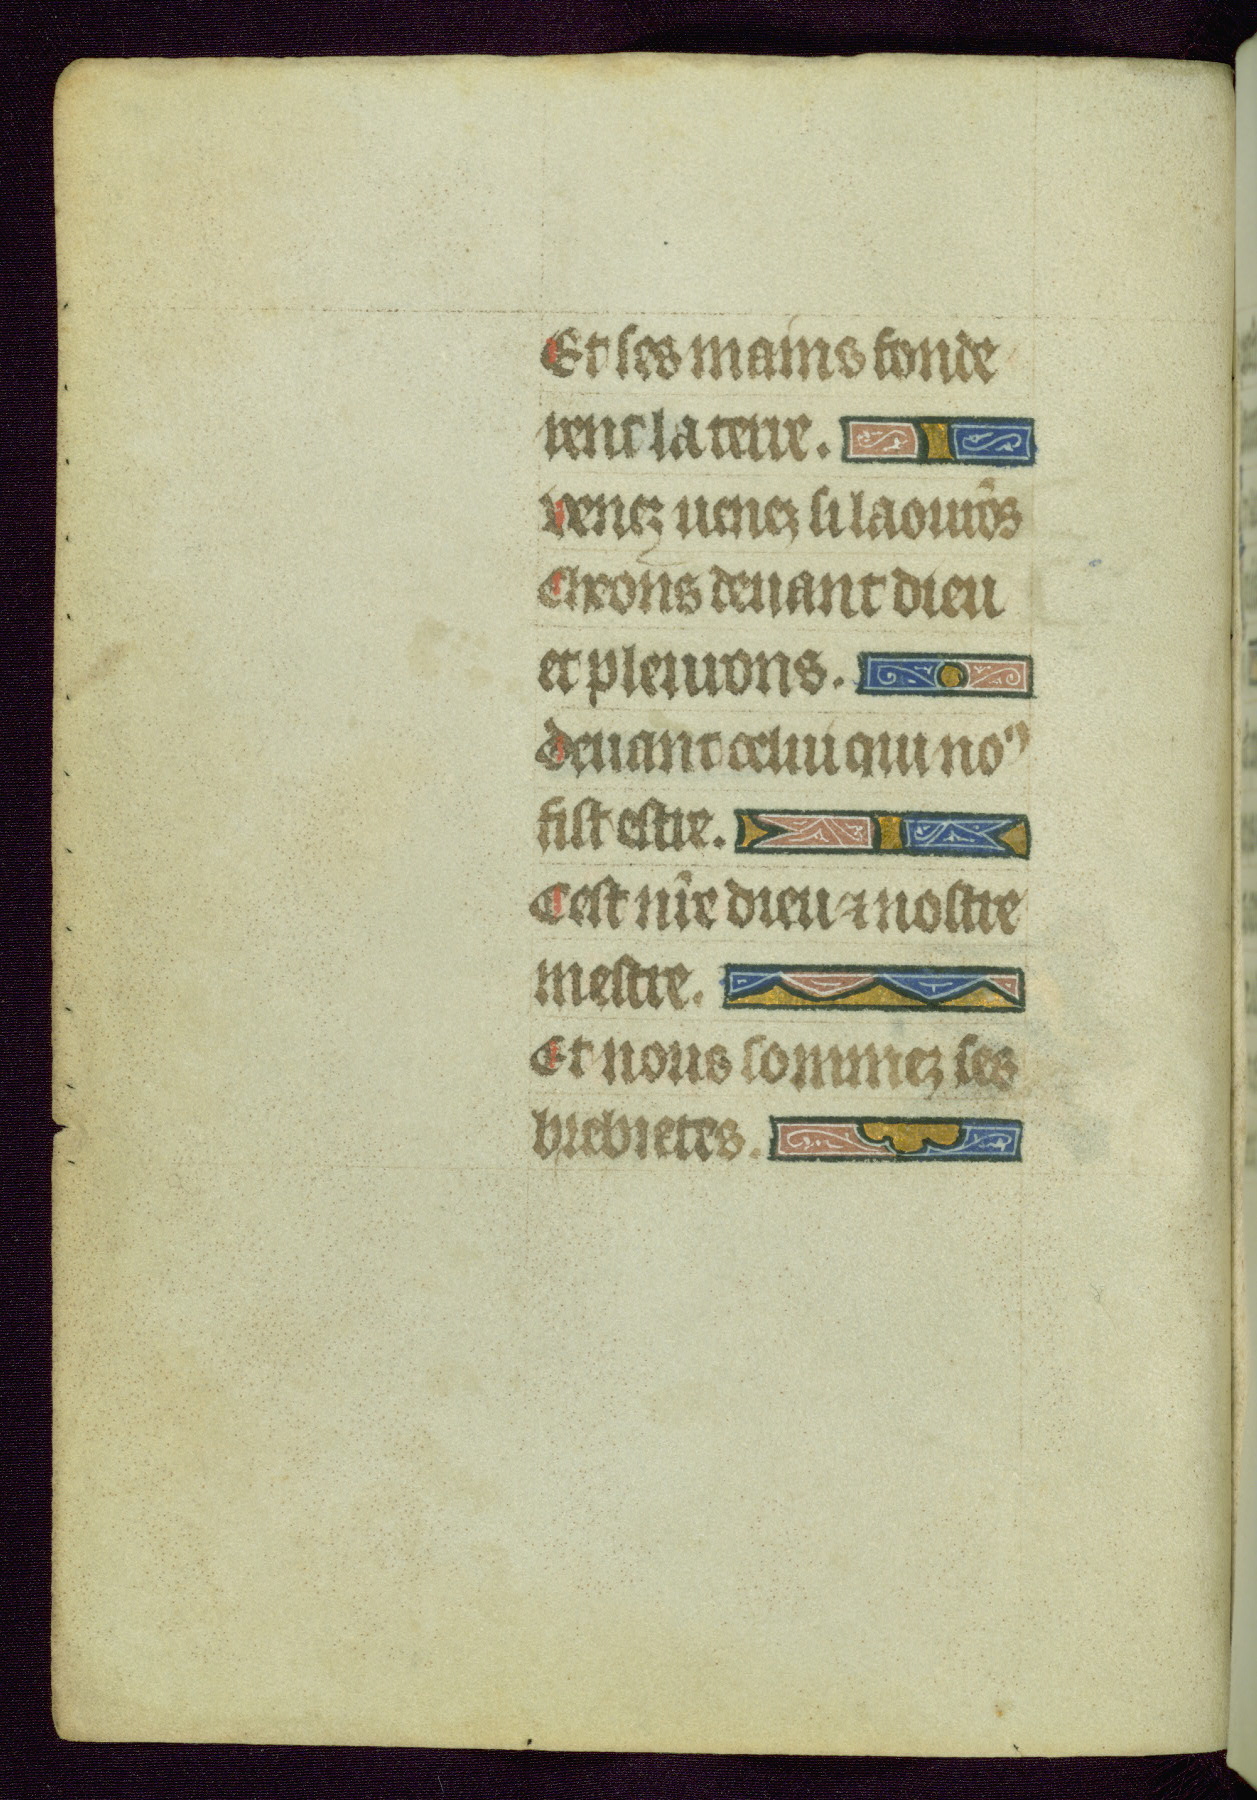 Et ses mains fonde
rent la terre.
Venez uenez si laourōs
Cheons deuant dieu
et pleurons.
Deuant celui qui noꝰ
fist estre.
Cest nr̄e dieu ⁊ nostre
mestre.
Et nous sommez ses
brebietes.